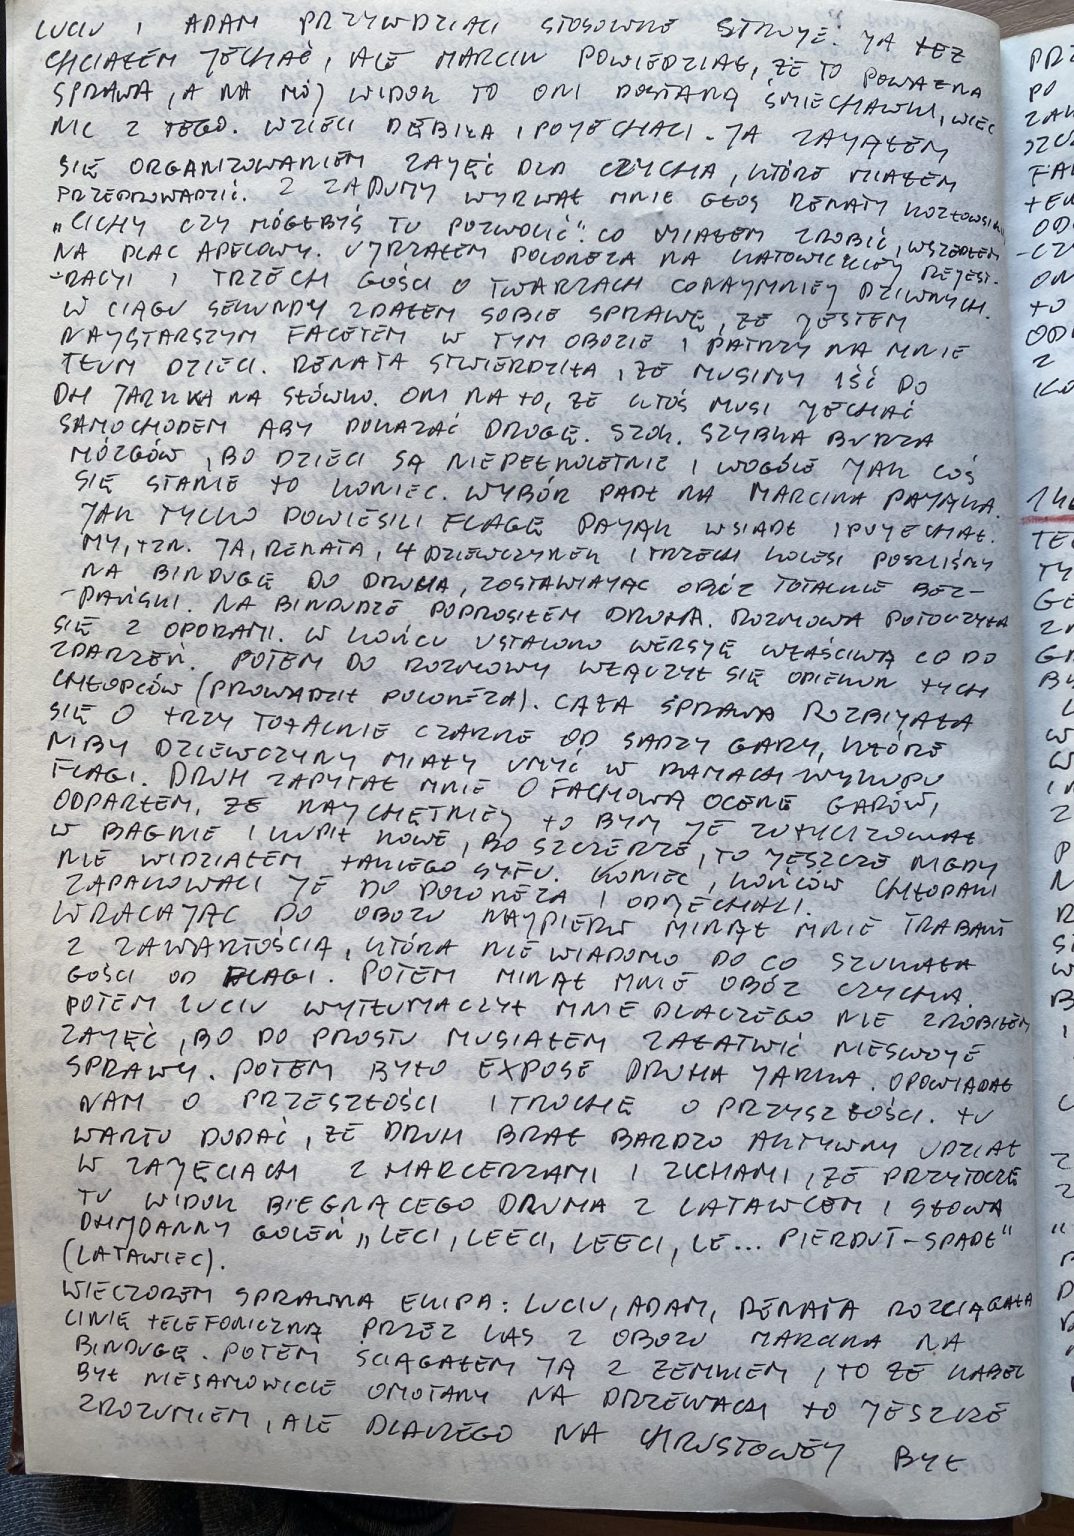 LUCIU I ADAM PRZYWDZIALI STOSOWNE STROJE. JA TEŻ
CHCIAŁEM JECHAĆ, ALE MARCIN POWIEDZIAŁ, ŻE TO POWAŻNA
SPRAWA, A NA MÓJ WIDOK TO ONI DOSTANĄ ŚMIECHAWKI, WIĘC
NIC Z TEGO. WZIELI DĘBIŁA I POJECHALI. JA ZAJĄŁEM
SIĘ ORGANIZOWANIEM ZAJĘĆ DLA CZYCHA, KTÓRE MIAŁEM
PRZEPROWADZIĆ. Z ZADUMY WYRWAŁ MNIE GŁOS RENATY KOZŁOWSKIEJ
„CICHY CZY MÓGŁBYŚ TU POZWOLIĆ". CO MIAŁEM ZROBIĆ, WSZEDŁEM
NA PLAC APELOWY. UJRZAŁEM POLONEZA NA KATOWICKIEJ REJEST-
-RACJI I TRZECH GOŚCI O TWARZACH CONAJMNIEJ DZIWNYCH.
W CIĄGU SEKUNDY ZDAŁEM SOBIE SPRAWĘ, ŻE JESTEM
NAJSTARSZYM FACETEM W TYM OBOZIE I PATRZY NA MNIE
TŁUM DZIECI. RENATA STWIERDZIŁA, ŻE MUSIMY IŚĆ DO
DH JARKA NA SŁÓWKO. ONI NA TO, ŻE KTOŚ MUSI JECHAĆ
SAMOCHODEM ABY POKAZAĆ DROGĘ. SZOK. SZYBKA BURZA
MÓZGÓW, BO DZIECI SĄ NIEPEŁNOLETNIE I WOGÓLE JAK COŚ
SIĘ STANIE TO KONIEC. WYBÓR PADŁ NA MARCINA PAJĄKA.
JAK TYLKO POWIESILI FLAGĘ PAJĄK WSIADŁ I POJECHAŁ.
MY, TZN. JA, RENATA, 4 DZIEWCZYNKI I TRZECH KOLESI POSZLIŚMY
NA BINDUGĘ DO DRUHA, ZOSTAWIAJĄC OBÓZ TOTALNIE BEZ-
-PAŃSKI. NA BINDUDZE POPROSIŁEM DRUHA. ROZMOWA POTOCZYŁA
SIĘ Z OPORAMI. W KOŃCU USTALONO WERSJĘ WŁAŚCIWĄ CO DO
ZDARZEŃ. POTEM DO ROZMOWY WŁĄCZYŁ SIĘ OPIEKUN TYCH
CHŁOPCÓW (PROWADZIŁ POLONEZA). CAŁA SPRAWA ROZBIJAŁA
SIĘ O TRZY TOTALNIE CZARNE OD SADZY GARY, KTÓRE
NIBY DZIEWCZYNY MIAŁY UMYĆ W RAMACH WYKUPU
FLAGI. DRUH ZAPYTAŁ MNIE O FACHOWĄ OCENĘ GARÓW,
ODPARŁEM, ŻE NAJCHĘTNIEJ TO BYM JE ZUTYLIZOWAŁ
W BAGNIE I KUPIŁ NOWE, BO SZCZERZE, TO JESZCZE NIGDY
NIE WIDZIAŁEM TAKIEGO SYFU. KONIEC, KOŃCÓW CHŁOPAKI
ZAPAKOWALI JE DO POLONEZA I ODJECHALI.
WRACAJĄC DO OBOZU NAJPIERW MINĄŁ MNIE TRABANT
Z ZAWARTOŚCIĄ, KTÓRA NIE WIADOMO PO CO SZUKAŁA
GOŚCI OD FLAGI. POTEM MINĄŁ MNIE OBÓZ CZYCHA.
POTEM LUCIU WYTŁUMACZYŁ MNIE DLACZEGO NIE ZROBIŁEM
ZAJĘĆ, BO PO PROSTU MUSIAŁEM ZAŁATWIĆ NIESWOJE
SPRAWY. POTEM BYŁO EXPOSE DRUHA JARKA. OPOWIADAŁ
NAM O PRZESZŁOŚCI I TROCHĘ O PRZYSZŁOŚCI. TU
WARTO DODAĆ, ŻE DRUH BRAŁ BARDZO AKTYWNY UDZIAŁ
W ZAJĘCIACH Z HARCERZAMI I ZUCHAMI, ŻE PRZYTOCZĘ
TU WIDOK BIEGNĄCEGO DRUHA Z LATAWCEM I SŁOWA
DH JOANNY GOLEŃ „LECI, LEECI, LEECI, LE... PIERDUT-SPADŁ"
(LATAWIEC).
WIECZOREM SPRAWNA EKIPA: LUCIU, ADAM, RENATA ROZCIĄGAŁA
LINIĘ TELEFONICZNĄ PRZEZ LAS Z OBOZU MARCINA NA
BINDUGĘ. POTEM ŚCIĄGAŁEM JĄ Z ZEMKIEM, TO ŻE KABEL
BYŁ NIESAMOWICIE OMOTANY NA DRZEWACH TO JESZCZE
ZROZUMIEM, ALE DLACZEGO NA CHRUSTOWEJ BYŁ